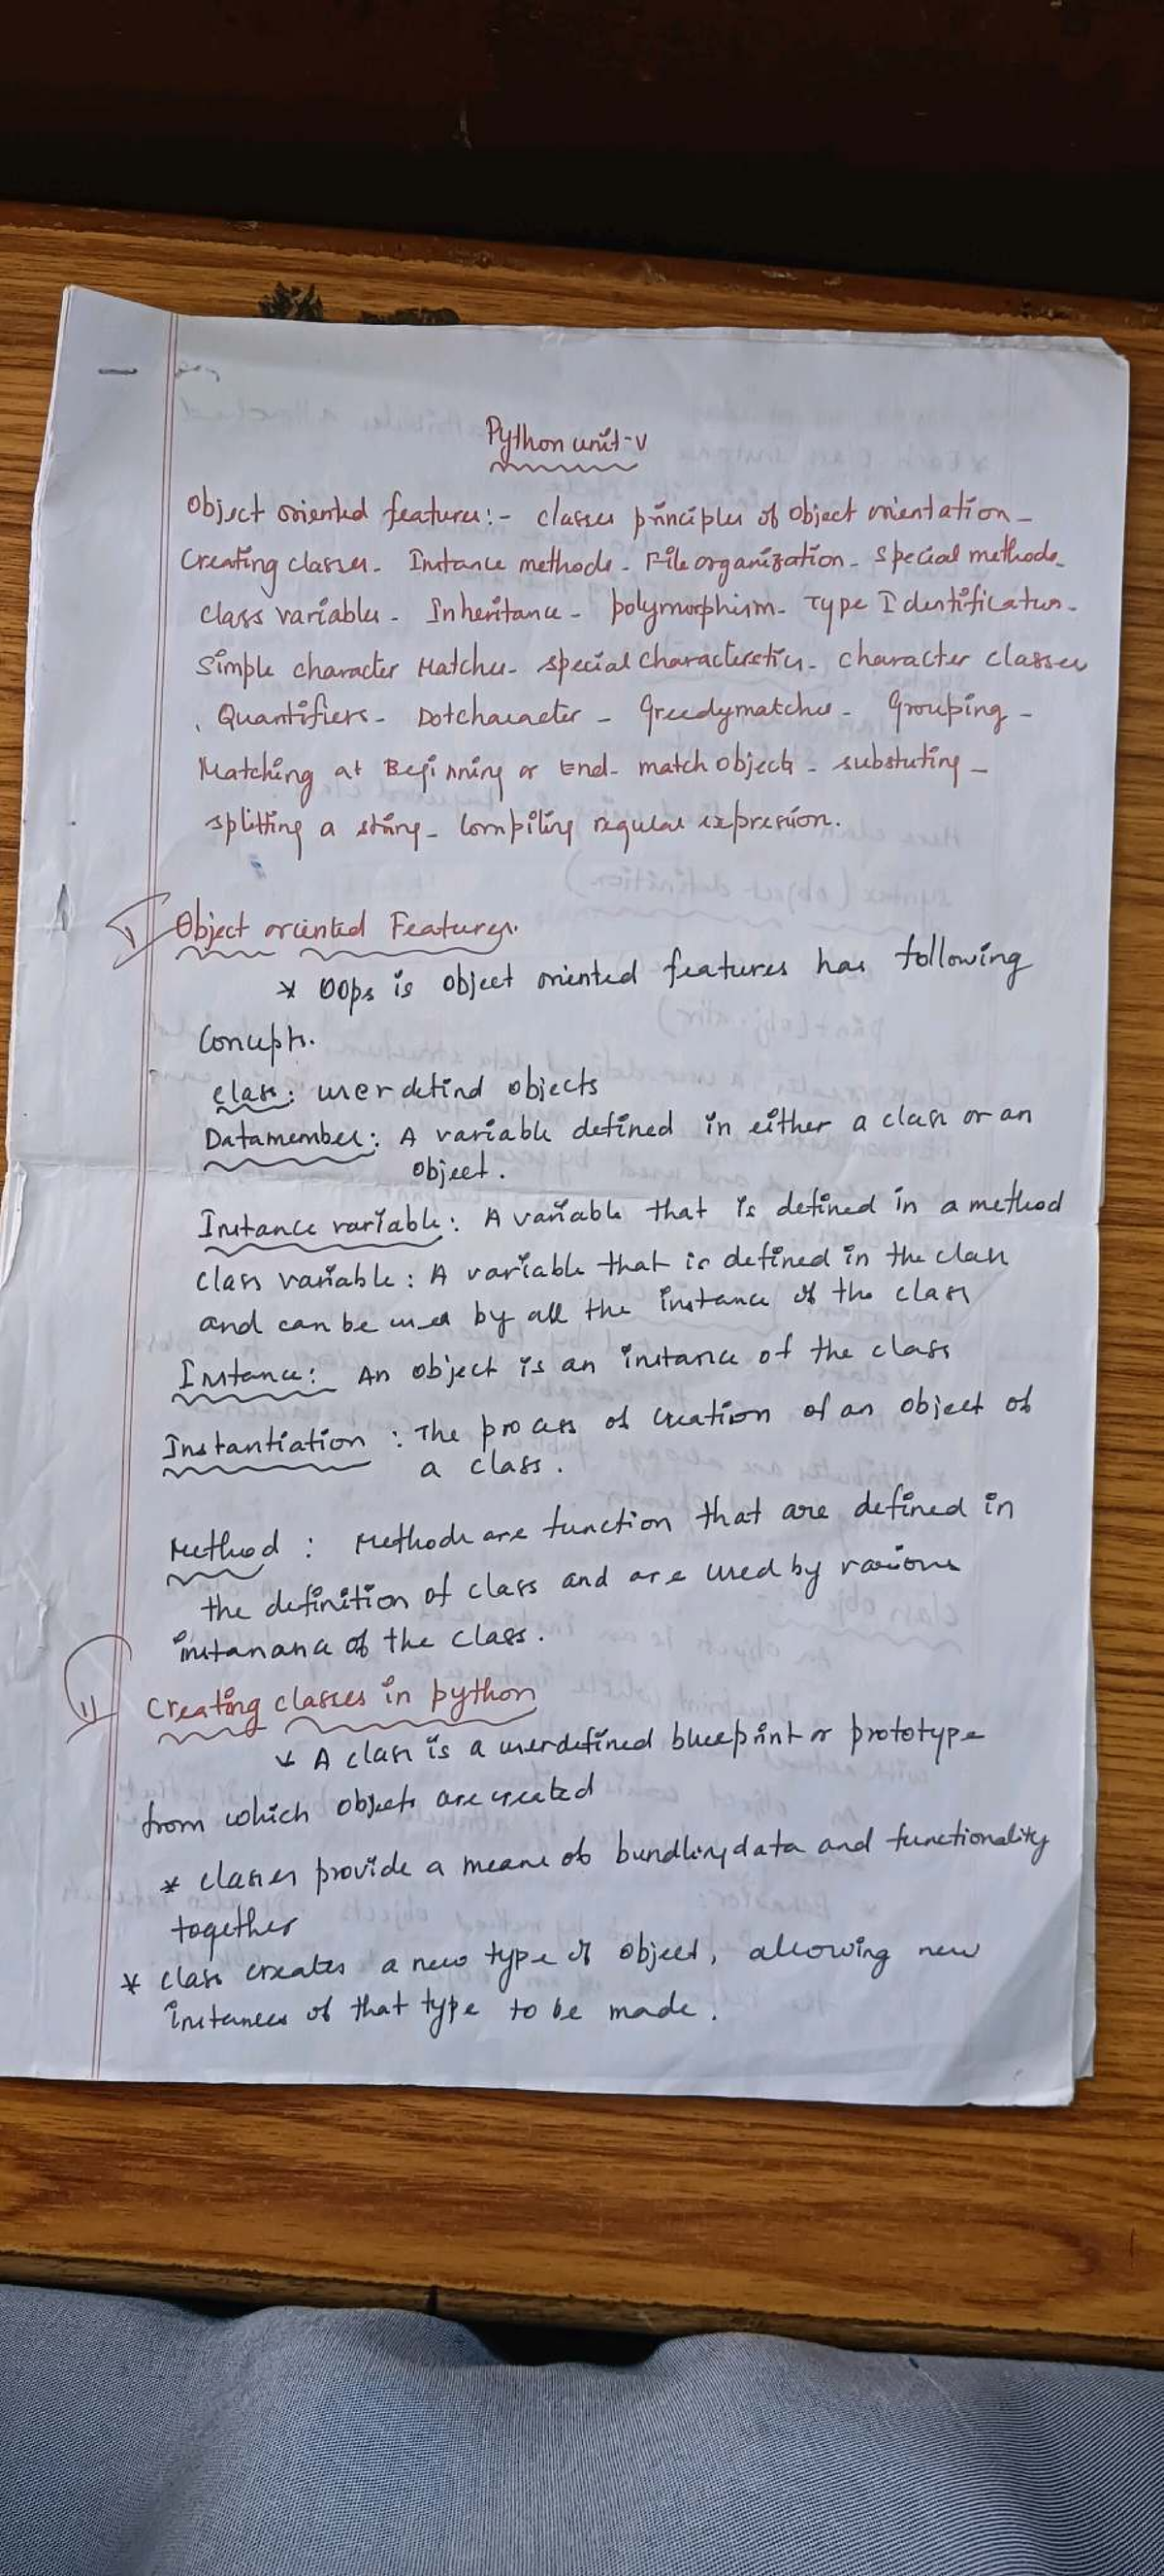 Python unit-V
Object oriented features:- classes principles of object orientation -
Creating classes - Instance methods - File organization - Special methods -
class variables - Inheritance - polymorphism - Type Identification -
Simple character Matches - special characterstics - character classes
, Quantifiers - Dotcharacter - Greedymatches - Grouping -
Matching at Beginning or End - match objects - substuting -
splitting a string - Compiling regular expression.
1 Object oriented Features.
* OOps is object oriented features has following
Concepts.
class: user defind objects
Datamember: A variable defined in either a class or an
object.
Instance variable: A variable that is defined in a method
class variable: A variable that is defined in the class
and can be used by all the instance of the class
Instance: An object is an instance of the class
Instantiation : The process of creation of an object of
a class.
Method : Methods are function that are defined in
the definition of class and are used by various
instanana of the class.
11 Creating classes in python
* A class is a userdefined blueprint or prototype
from which objects are created
* classes provide a means of bundling data and functionality
together
* class creates a new type of object, allowing new
instances of that type to be made.